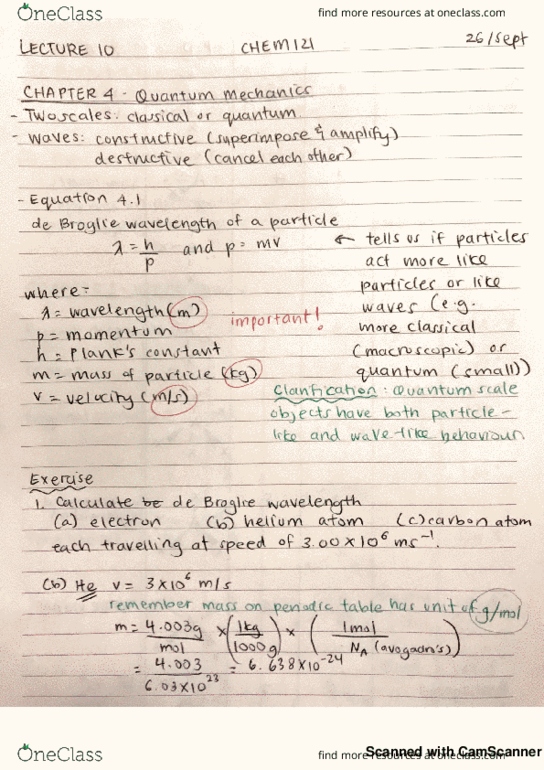 OneClass find more resources at oneclass.com
LECTURE 10 CHEM121 26/Sept
CHAPTER 4 - Quantum Mechanics
- Two scales: classical or quantum
- waves: constructive (superimpose & amplify)
destructive (cancel each other)
- Equation 4.1
de Broglie wavelength of a particle
λ = h/p and p = mv
← tells us if particles
act more like
particles or like
waves (e.g.
more classical
(macroscopic) or
quantum (small))
where:
λ = wavelength (m)
p = momentum
h = Plank's constant
m = mass of particle (kg)
v = velocity (m/s)
important!
Clarification: Quantum scale
objects have both particle-
like and wave-like behaviour
Exercise
1. Calculate de Broglie wavelength
(a) electron (b) helium atom (c) carbon atom
each travelling at speed of 3.00 x 10⁶ ms⁻¹.
(b) He v = 3x10⁶ m/s
remember mass on periodic table has unit of g/mol
m = 4.003g/mol x (1kg/1000g) x (1mol/N_A (avogadri's))
= 4.003/6.03x10²³ = 6.638x10⁻²⁴
OneClass find more resources at oneclass.com
Scanned with CamScanner